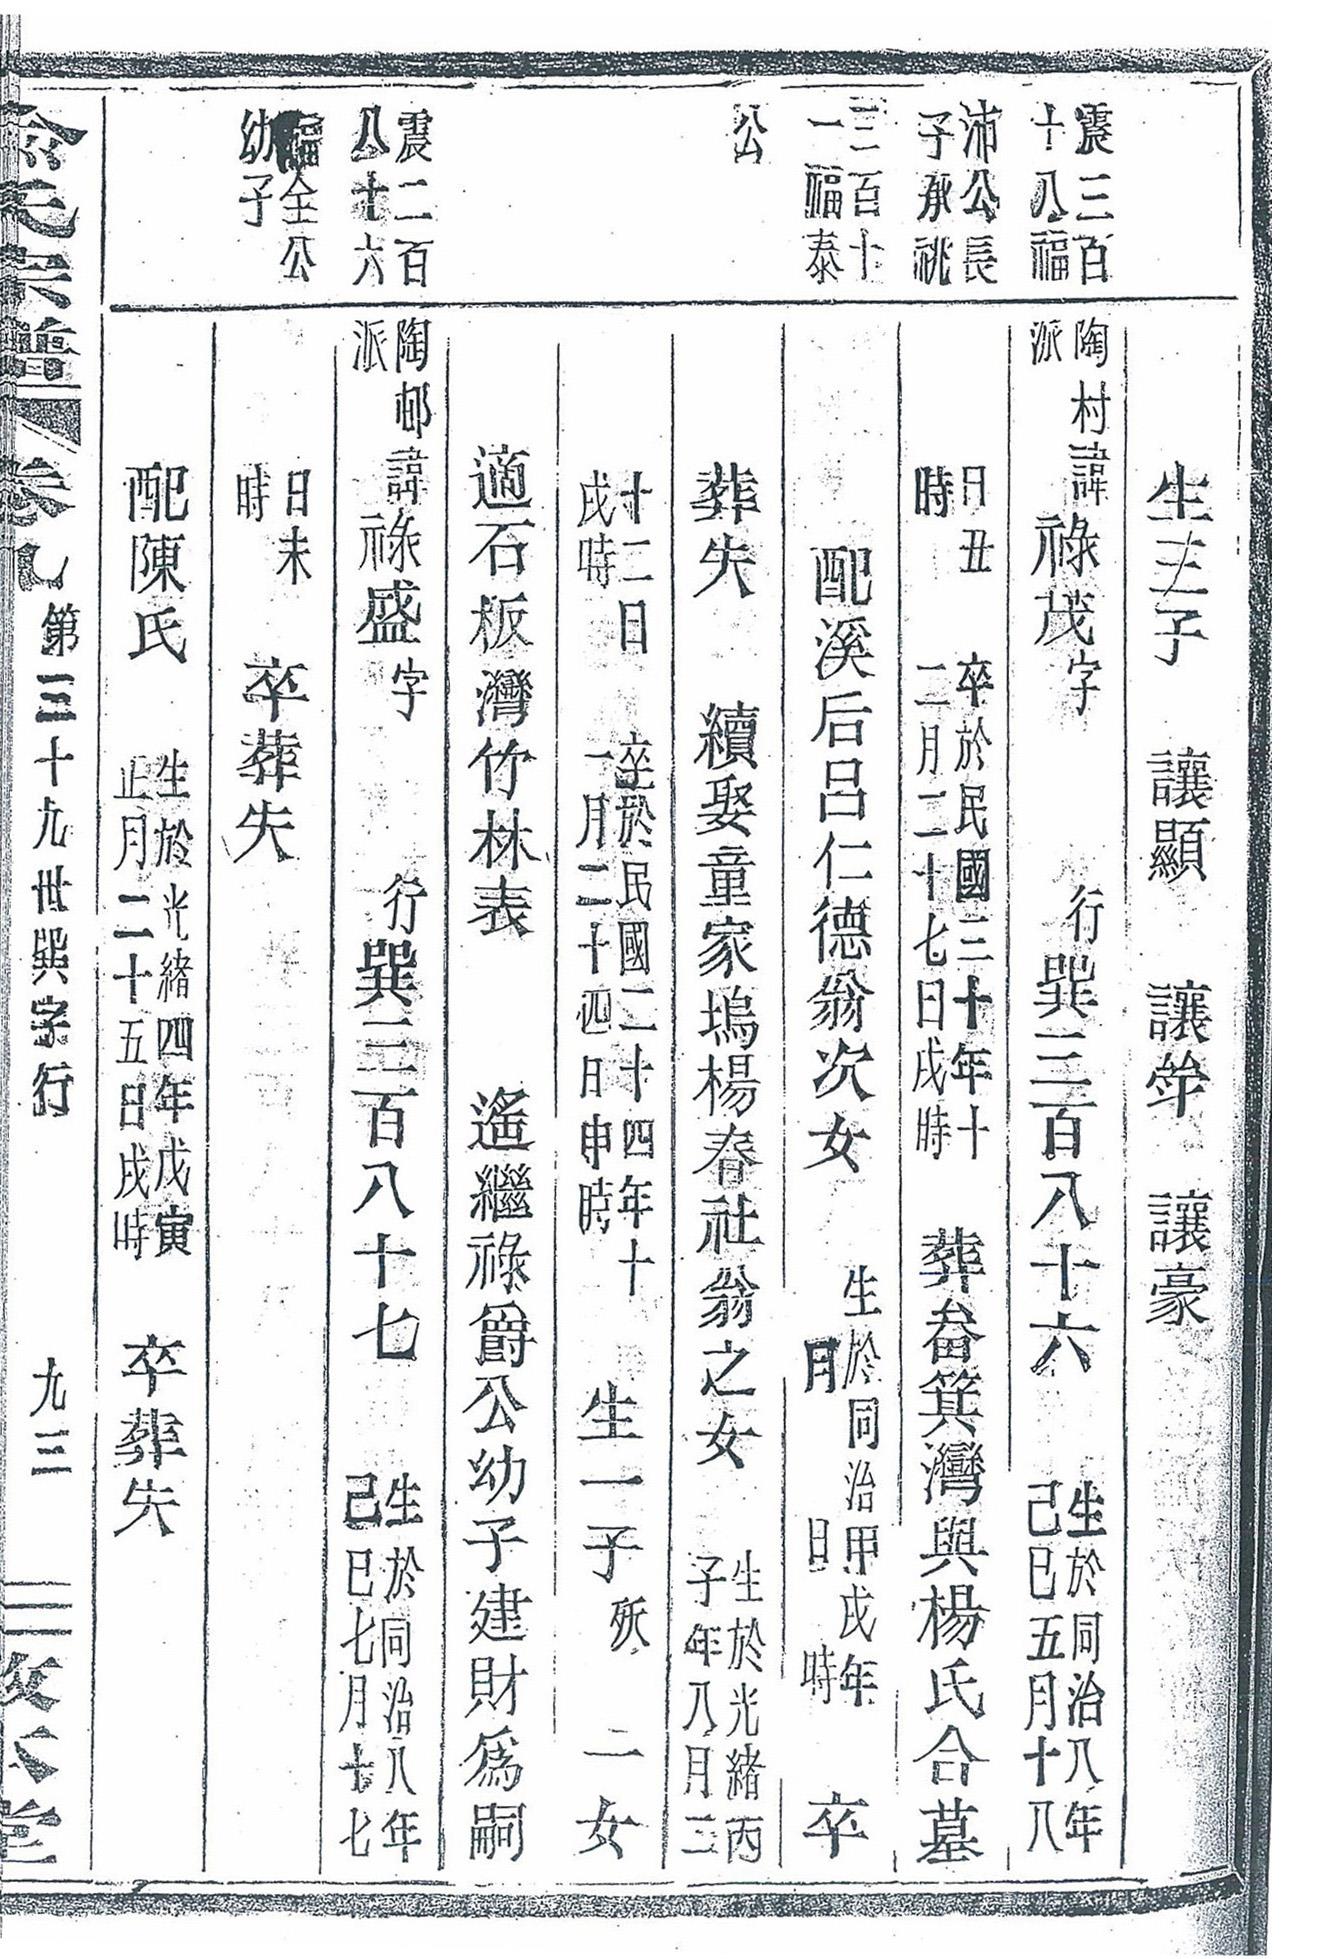 生三子　讓顯　讓弅　讓豪
震三百
十八福
沛公長
子承祧
陶村諱祿茂字　行巽三百八十六　生於同治八年
派　己巳五月十八
日丑　卒於民國三十年十
時　二月二十七日戌時　葬畚箕灣與楊氏合墓
三百十
一福泰
公
配溪后呂仁德翁次女　生於同治甲戌年
月　日　時　卒
葬失　續娶童家塢楊春社翁之女　生於光緒丙
子年八月二
十二日　卒於民國二十四年十
戌時　一月二十四日申時　生一子殀　二女
適石板灣竹林表　遙繼祿爵公幼子建財爲嗣
震二百
八十六
福全公
幼子
陶邨諱祿盛字　行巽三百八十七　生於同治八年
派　己巳七月十七
日未
時　卒葬失
配陳氏　生於光緒四年戊寅
正月二十五日戌時　卒葬失
俞氏宗譜　卷九　第三十九世巽字行　九三　敦本堂